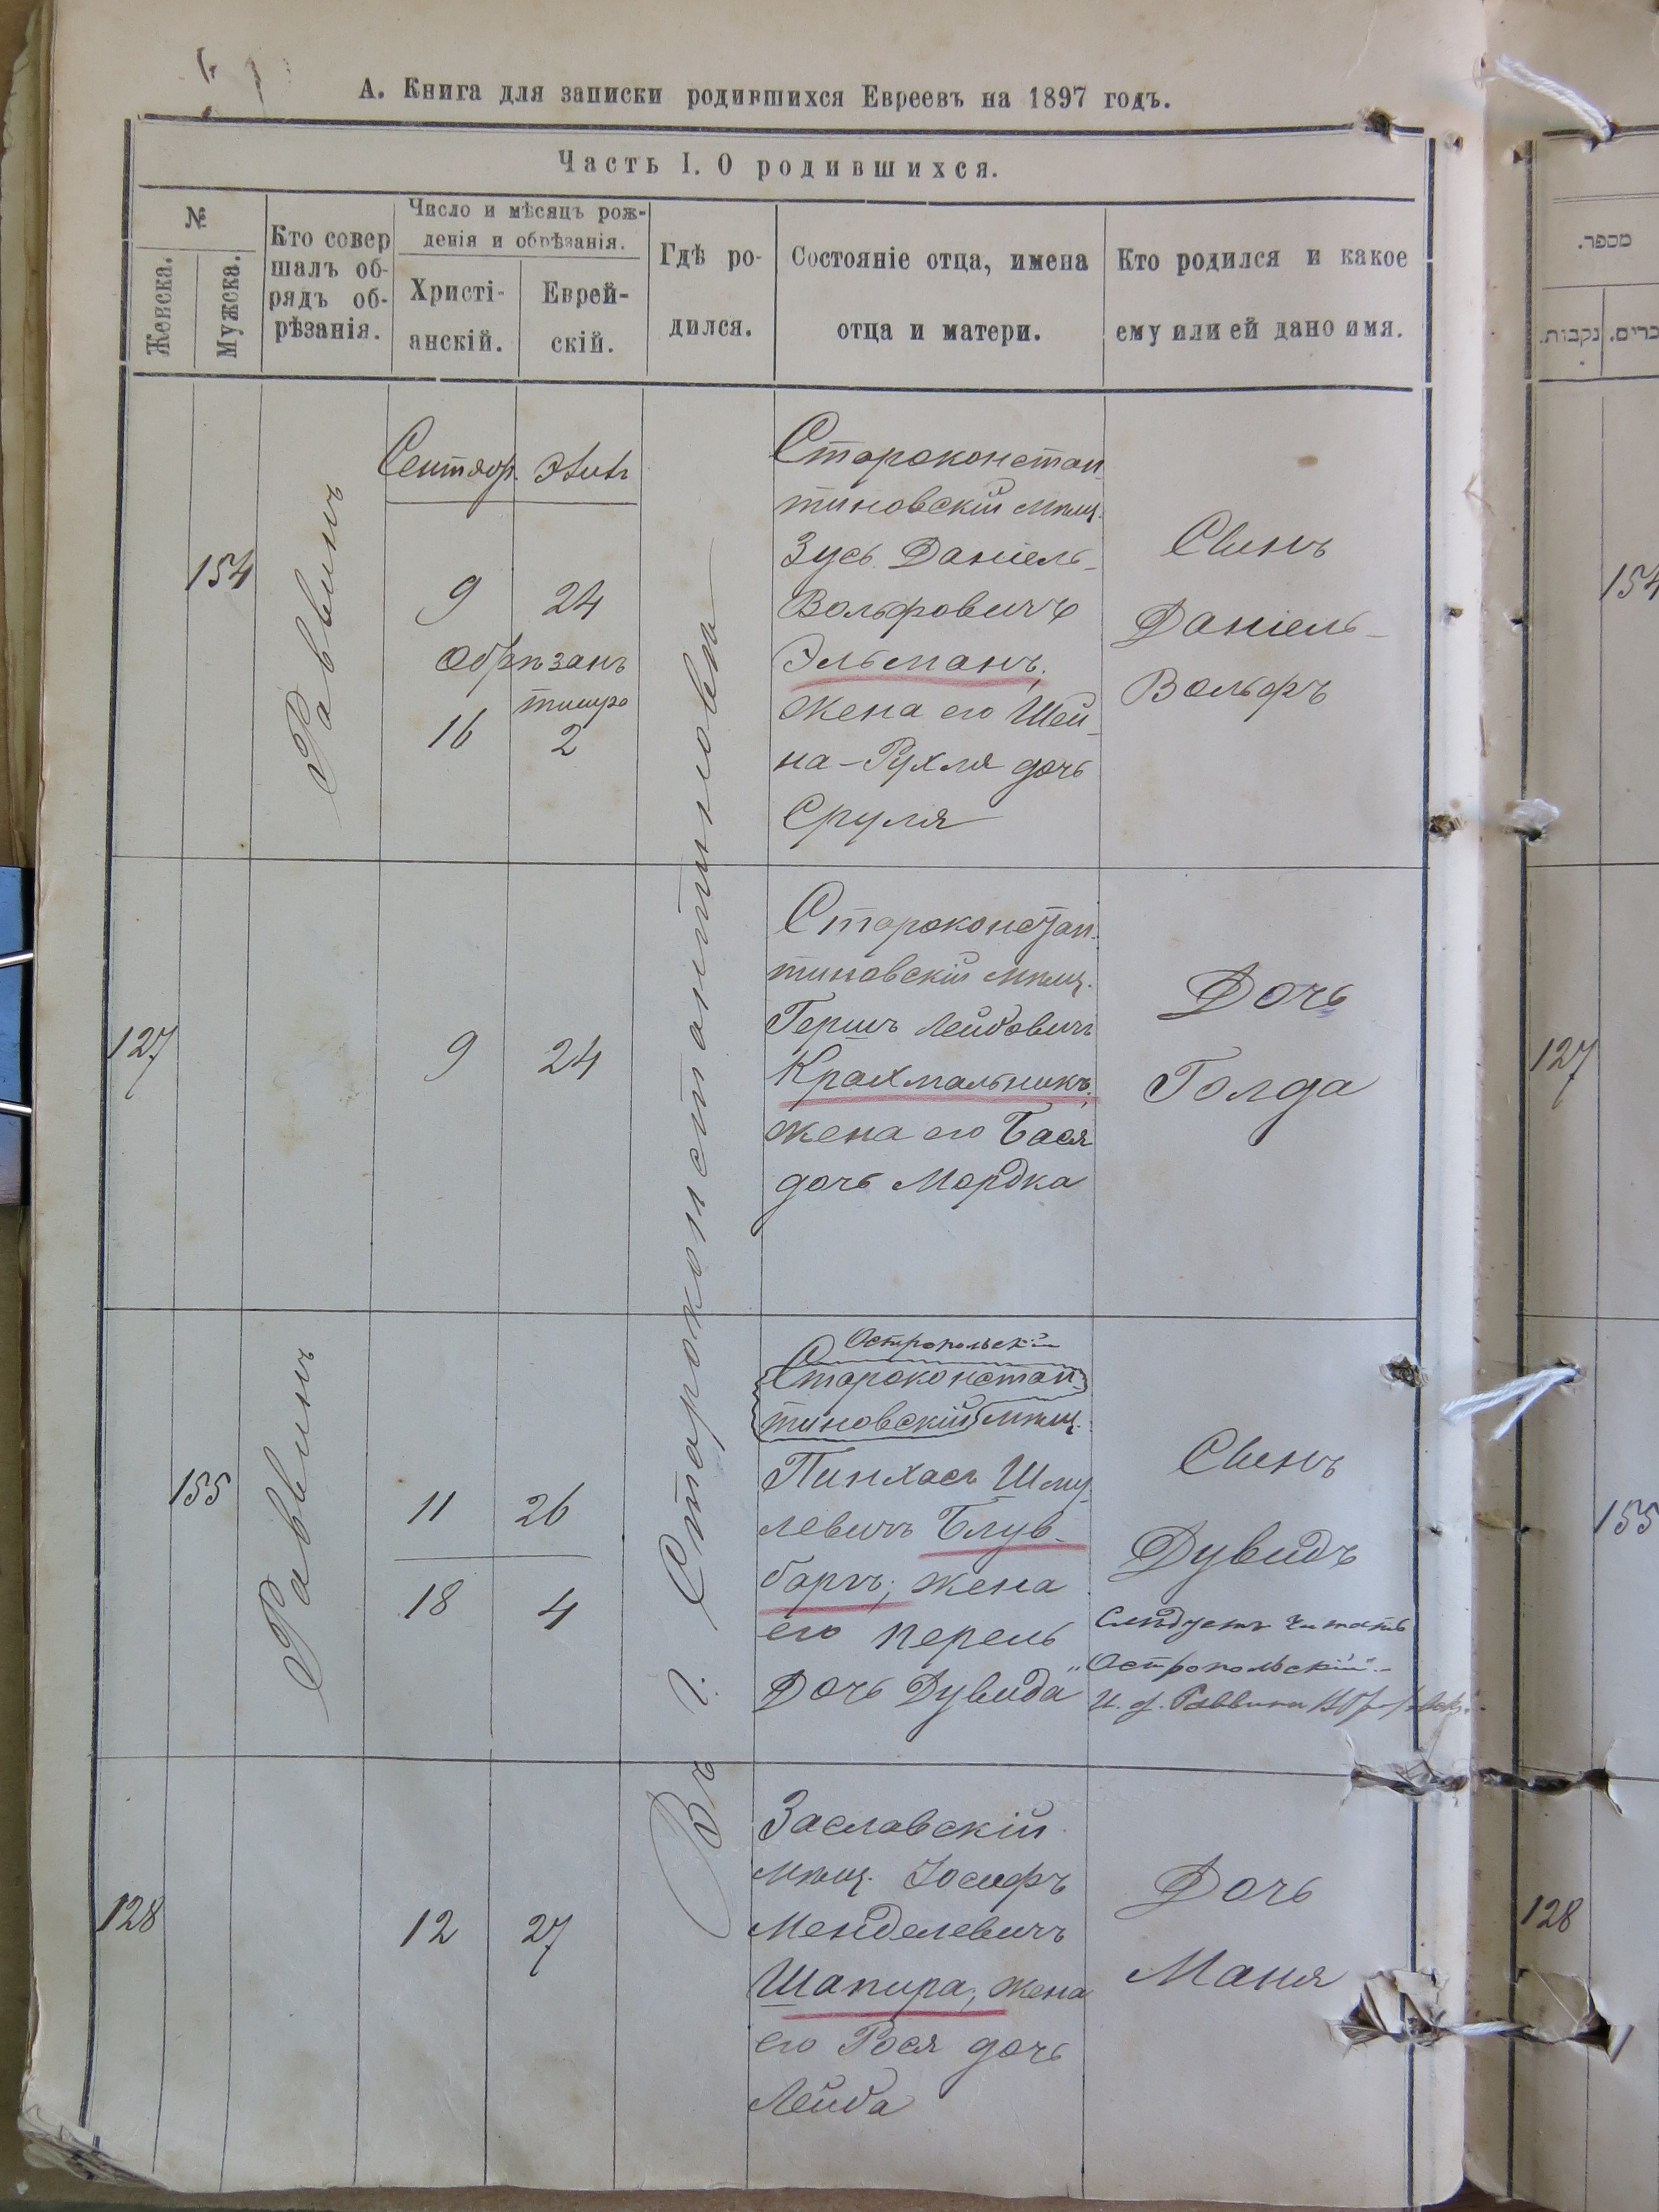 А. Книга для записки родившихся Евреевъ на 1897 годъ.
Часть I. О родившихся.
№
Женска.
Мужска.
Кто совер
шалъ об-
рядъ об-
рѣзанія.
Число и мѣсяцъ рож-
денія и обрѣзанія.
Христі-
анскій.
Еврей-
скій.
Гдѣ ро-
дился.
Состояніе отца, имена
отца и матери.
Кто родился и какое
ему или ей дано имя.
מספר.
נקבות.
כרים.
154
Раввинъ
Сентябр.
9
24
Обрѣзанъ
тишре
16
2
Въ г. Староконстантиновѣ
Староконстан
тиновскій мѣщ.
Зусь Даніель-
Вольфовичъ
Эльманъ,
жена его Шей-
на-Рухля дочь
Сруля
Сынъ
Даніель-
Вольфъ
154
127
9
24
Староконстан-
тиновскій мѣщ.
Гершъ Лейбовичъ
Крахмальникъ,
жена его Бася
дочь Мордка
Дочь
Голда
127
155
Раввинъ
11
26
18
4
Остропольскій
Староконстан-
тиновскій мѣщ.
Пинхасъ Шму
левичъ Блув-
бартъ; жена
его Перель
Дочь Дувида
Сынъ
Дувидъ
Слѣдуетъ читать
„Остропольскій".-
И. д. Раввина
155
128
12
27
Заславскій
мѣщ. Іосифъ
Менделевичъ
Шапира, жена
его Рося дочь
Лейба
Дочь
Маня
128